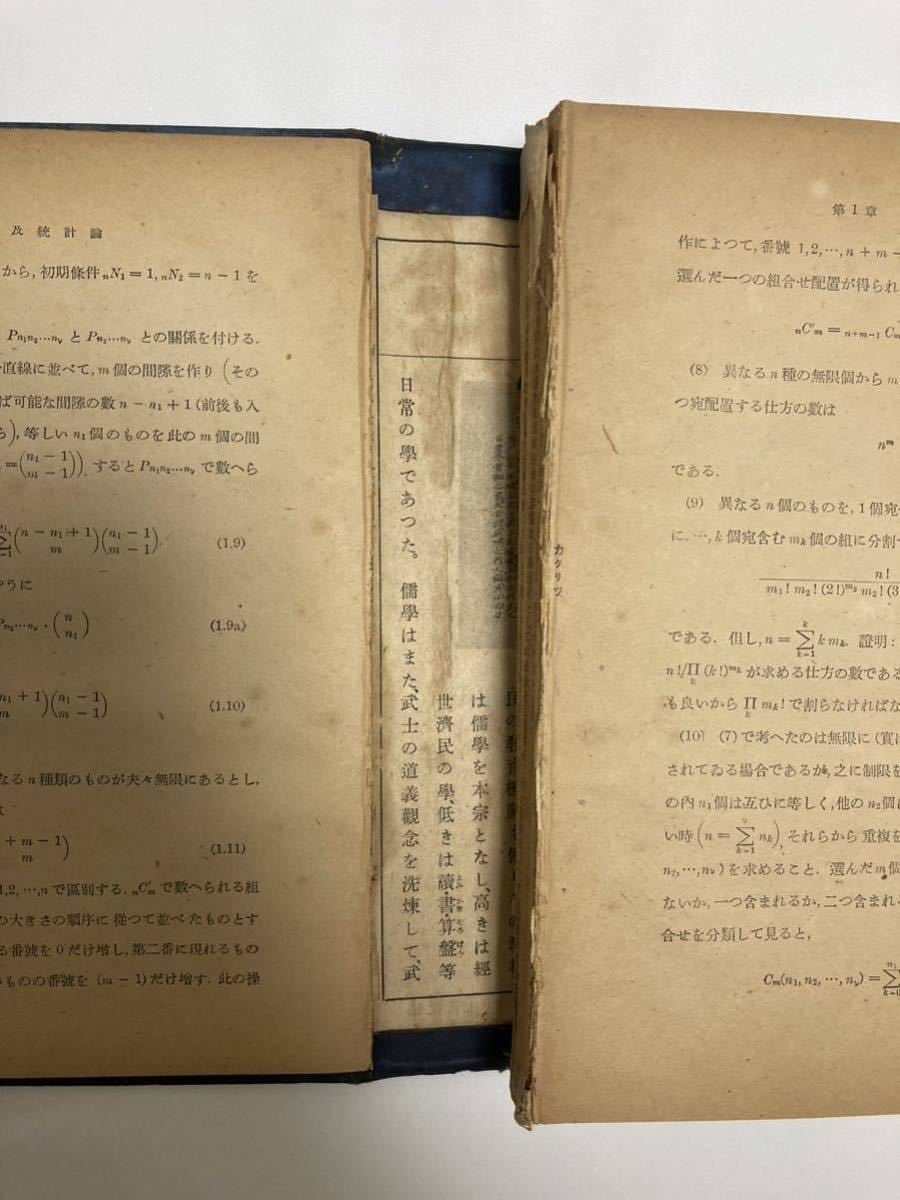 及統計論
から, 初期條件 ₙN₁ = 1, ₙN₂ = n − 1 を
Pₙ₁ₙ₂…ₙᵥ と Pₙ₂…ₙᵥ との關係を付ける.
直線に並べて, m 個の間隙を作り (その
ば可能な間隙の數 n − n₁ + 1 (前後も入
ら), 等しい n₁ 個のものを此の m 個の間
= (n₁ − 1 / m − 1)). すると Pₙ₁ₙ₂…ₙᵥ で數へら
(n − n₁ + 1 / m)(n₁ − 1 / m − 1). (1.9)
やうに
Pₙ₂…ₙᵥ · (n / n₁) (1.9a)
n₁ + 1 / m)(n₁ − 1 / m − 1) (1.10)
なる n 種類のものが夫々無限にあるとし,
は
+ m − 1 / m) (1.11)
1,2, …, n で區別する. ₙC′ₘ で數へられる組
の大きさの順序に從つて並べたものとす
る番號を 0 だけ增し, 第二番に現れるもの
のものの番號を (m − 1) だけ增す. 此の操
民の
は儒學を本宗となし、高きは經
世濟民の學、低きは讀・書・算盤等
日常の學であつた。 儒學はまた、武士の道義觀念を洗煉して、武
カクリツ
く
第1章
作によつて, 番號 1, 2, …, n + m −
選んだ一つの組合せ配置が得られ
ₙC′ₘ = ₙ₊ₘ₋₁Cₘ
(8) 異なる n 種の無限個から m
つ宛配置する仕方の數は
nᵐ
である.
(9) 異なる n 個のものを, 1 個宛
に, …, k 個宛含む mₖ 個の組に分割
n! / m₁! m₂! (2!)ᵐ² m₃! (3
である. 但し, n = Σₖ₌₁ᵏ k mₖ. 證明:
n!/Πₖ (k!)ᵐᵏ が求める仕方の數である
も良いから Πₖ mₖ! で割らなければな
(10) (7) で考へたのは無限に (實は
されてゐる場合であるが, 之に制限を
の內 n₁ 個は互ひに等しく, 他の n₂ 個は
い時 (n = Σₖ₌₁ᵛ nₖ), それらから重複を
n₂, …, nᵥ) を求めること. 選んだ m 個
ないか, 一つ含まれるか, 二つ含まれ
合せを分類して見ると,
Cₘ(n₁, n₂, …, nᵥ) = Σₖ₌₀ⁿ¹